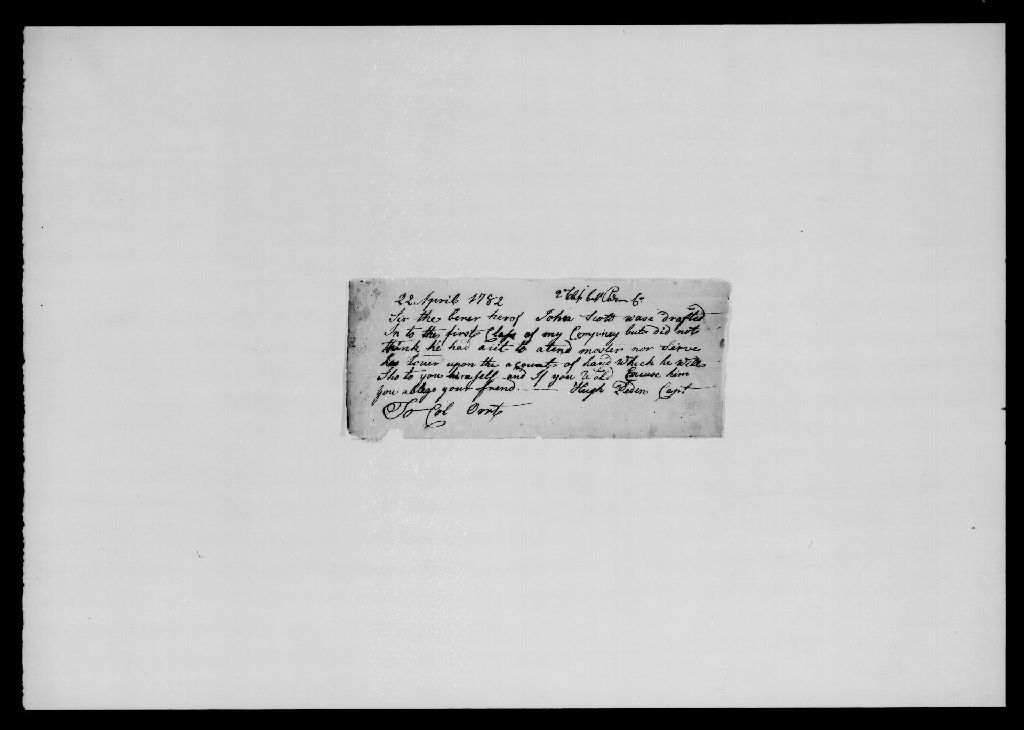 22 April 1782 2d Class Col
Sir the berer herof John Scott wase drafted
In to the first Class of my Compney but did not
think he had arit to atend muster nor Serve
his touer upon the acount of hand which he will
Sho to you himself and If you Excuse him
you ablige your frend Hugh Peden Capt
To Col Orr